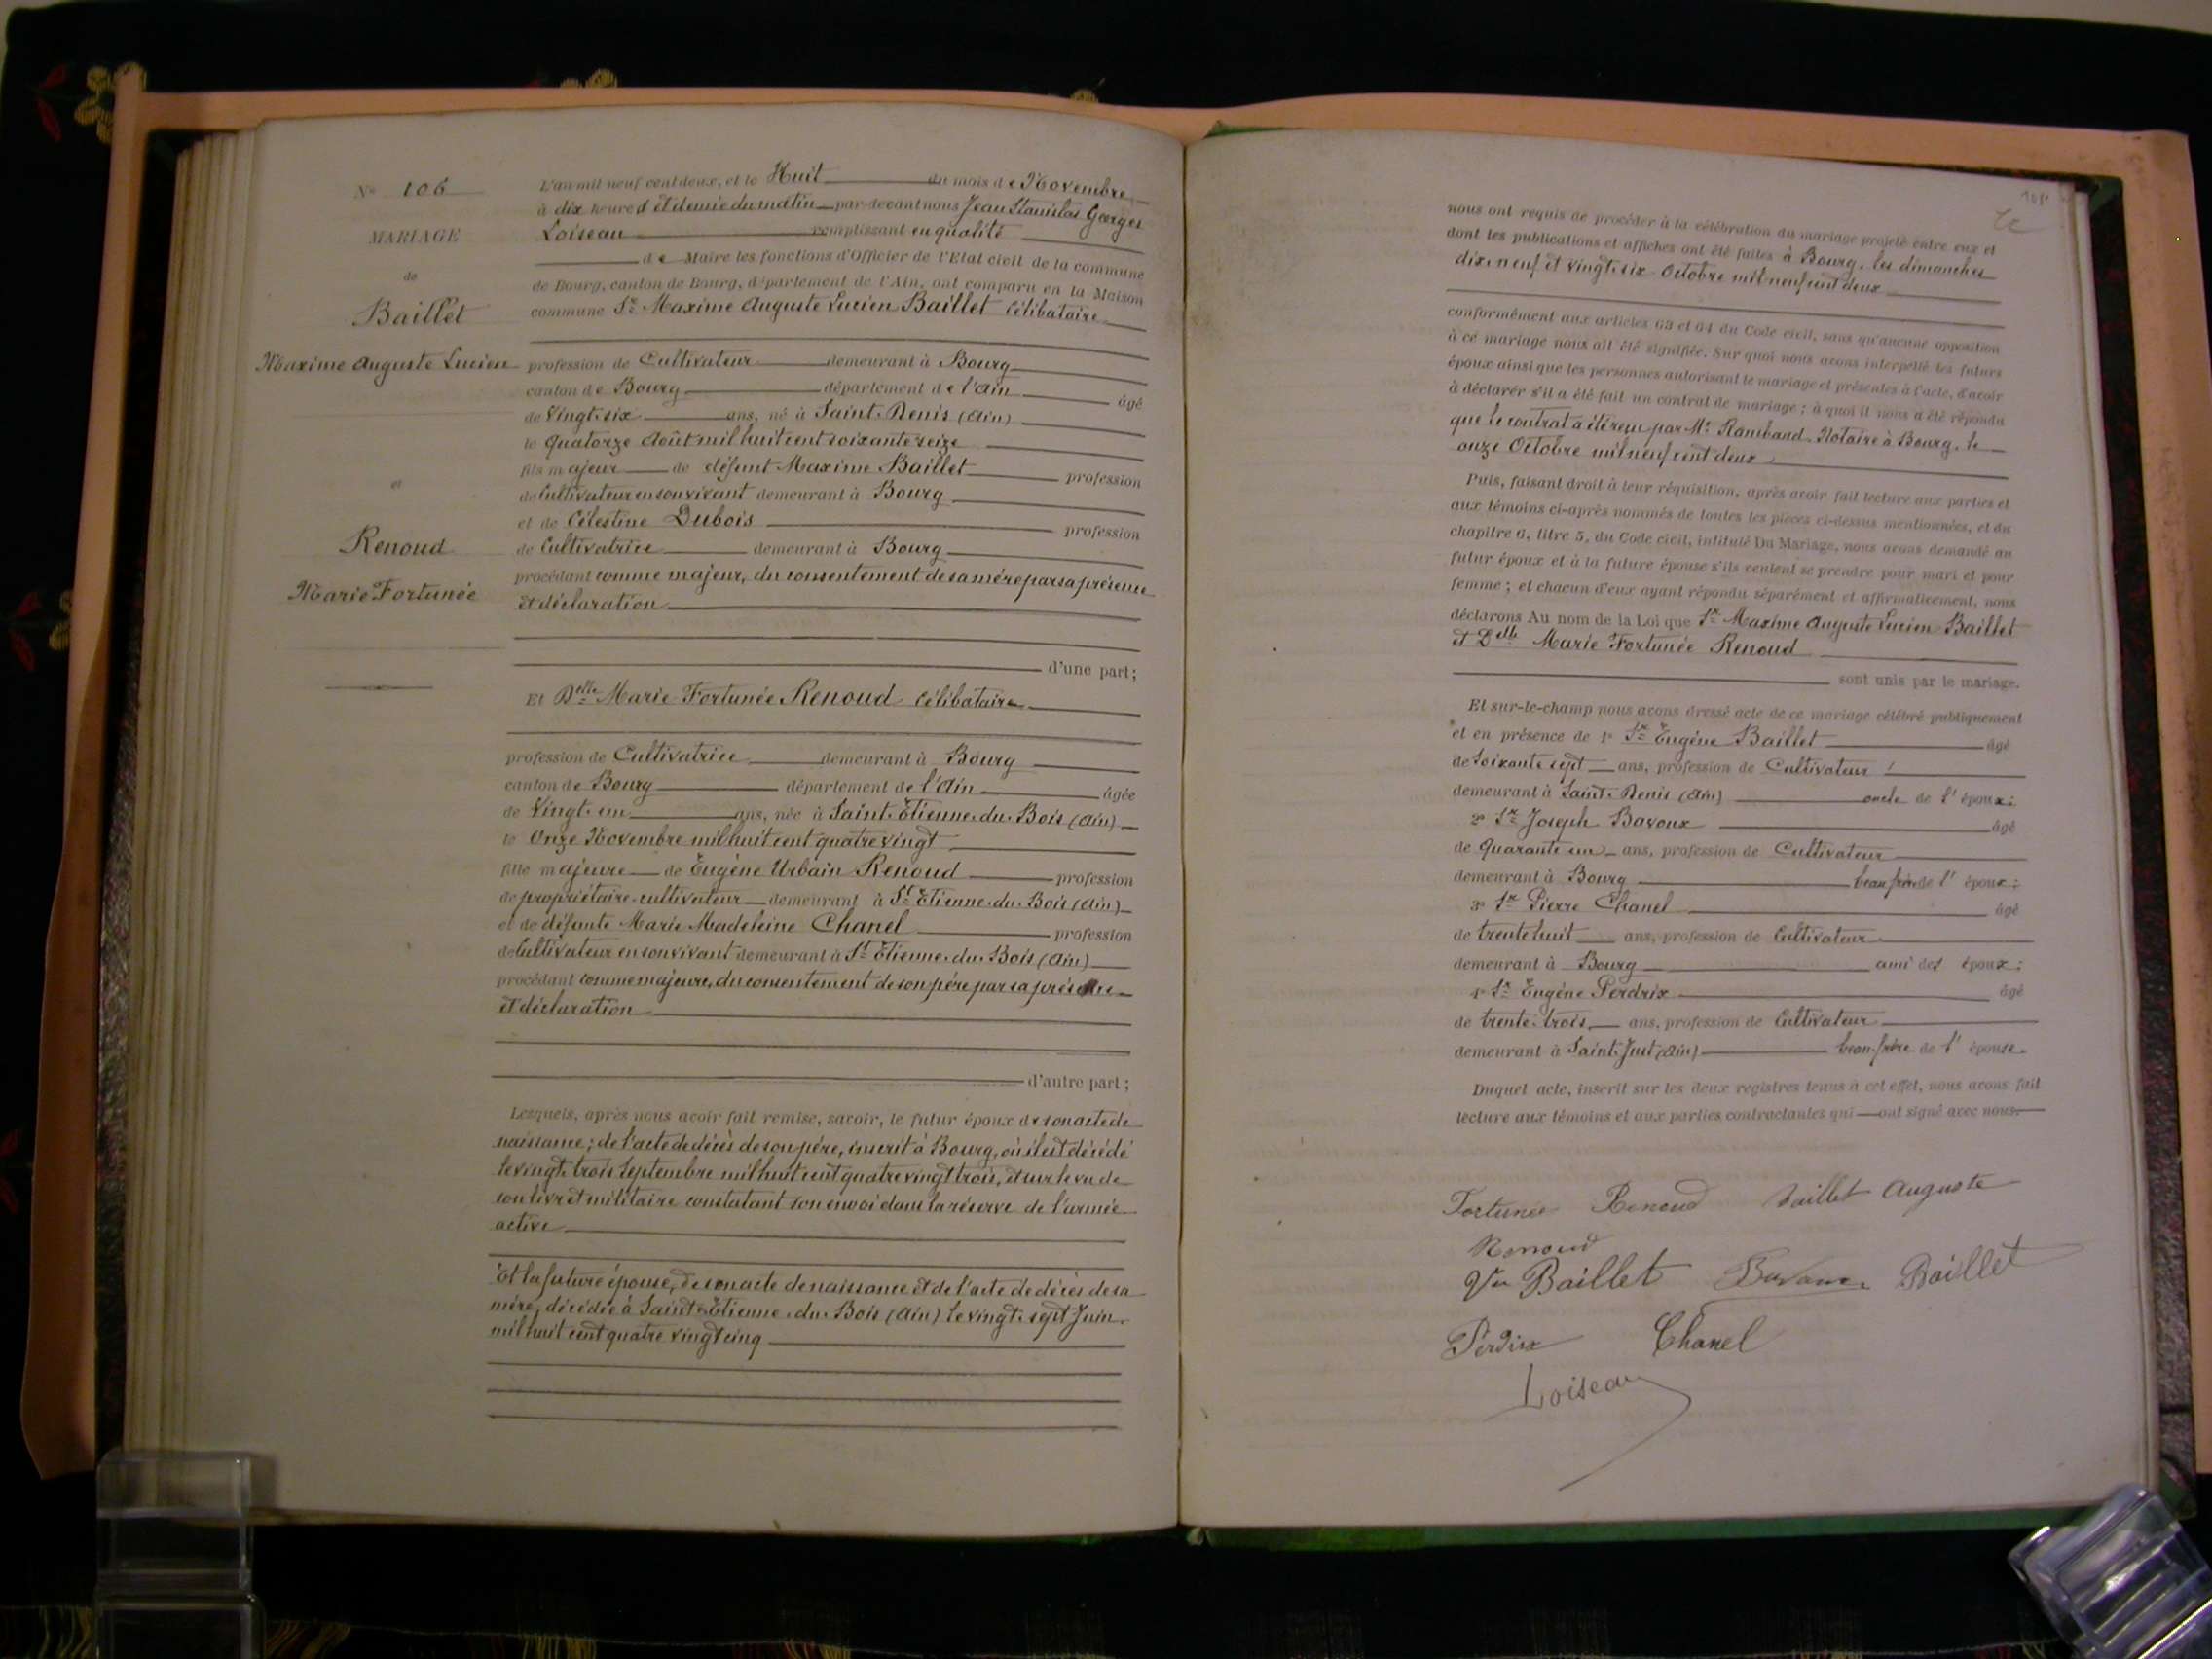 N° 106
MARIAGE
de
Baillet
Maxime Auguste Lucien
et
Renoud
Marie Fortunée
L'an mil neuf cent deux, et le Huit du mois de Novembre
à dix heures et demie du matin par-devant nous Jean Stanislas Georges
Loiseau remplissant en qualité
de Maire les fonctions d'Officier de l'Etat civil de la commune
de Bourg, canton de Bourg, département de l'Ain, ont comparu en la Maison
commune Sr Maxime Auguste Lucien Baillet Célibataire
profession de Cultivateur demeurant à Bourg
canton de Bourg département de l'Ain âgé
de Vingt-six ans, né à Saint-Denis (Ain)
le quatorze Août mil huit cent soixante seize
fils majeur de défunt Maxime Baillet profession
de Cultivateur en son vivant demeurant à Bourg
et de Célestine Dubois profession
de Cultivatrice demeurant à Bourg
procédant comme majeur, du consentement de sa mère par sa présence
et déclaration
d'une part;
Et Delle Marie Fortunée Renoud Célibataire
profession de Cultivatrice demeurant à Bourg
canton de Bourg département de l'Ain âgée
de Vingt-un ans, née à Saint-Etienne-du-Bois (Ain)
le Onze Novembre mil huit cent quatre vingt
fille majeure de Eugène Urbain Renoud profession
de propriétaire-cultivateur demeurant à St Etienne-du-Bois (Ain)
et de défunte Marie Madeleine Chanel profession
de Cultivateur en son vivant demeurant à St Etienne-du-Bois (Ain)
procédant comme majeure, du consentement de son père par sa présence
et déclaration
d'autre part;
Lesquels, après nous avoir fait remise, savoir, le futur époux de son acte de
naissance; de l'acte de décès de son père, inscrit à Bourg, où il est décédé
le vingt-trois Septembre mil huit cent quatre vingt trois, et sur le vu de
son livret militaire constatant son envoi dans la réserve de l'armée
active
Et la future épouse, de son acte de naissance et de l'acte de décès de sa
mère, décédée à Saint-Etienne-du-Bois (Ain) le vingt-sept Juin
mil huit cent quatre vingt cinq
nous ont requis de procéder à la célébration du mariage projeté entre eux et
dont les publications et affiches ont été faites à Bourg, les dimanches
dix-neuf et vingt-six Octobre mil neuf cent deux
conformément aux articles 63 et 64 du Code civil, sans qu'aucune opposition
à ce mariage nous ait été signifiée. Sur quoi nous avons interpellé les futurs
époux ainsi que les personnes autorisant le mariage et présentes à l'acte, d'avoir
à déclarer s'il a été fait un contrat de mariage; à quoi il nous a été répondu
que le contrat a été reçu par Me Rambaud Notaire à Bourg, le
onze Octobre mil neuf cent deux
Puis, faisant droit à leur réquisition, après avoir fait lecture aux parties et
aux témoins ci-après nommés de toutes les pièces ci-dessus mentionnées, et du
chapitre 6, titre 5, du Code civil, intitulé Du Mariage, nous avons demandé au
futur époux et à la future épouse s'ils veulent se prendre pour mari et pour
femme; et chacun d'eux ayant répondu séparément et affirmativement, nous
déclarons Au nom de la Loi que Sr Maxime Auguste Lucien Baillet
et Delle Marie Fortunée Renoud
sont unis par le mariage.
Et sur-le-champ nous avons dressé acte de ce mariage célébré publiquement
et en présence de 1° Sr Eugène Baillet âgé
de Soixante sept ans, profession de Cultivateur
demeurant à Saint-Denis (Ain) oncle de l'époux;
2° Sr Joseph Bavoux âgé
de Quarante un ans, profession de Cultivateur
demeurant à Bourg beau frère de l'époux;
3° Sr Pierre Chanel âgé
de trente huit ans, profession de Cultivateur
demeurant à Bourg ami des époux;
4° Sr Eugène Perdrix âgé
de trente-trois ans, profession de Cultivateur
demeurant à Saint-Just (Ain) beau-frère de l'épouse.
Duquel acte, inscrit sur les deux registres tenus à cet effet, nous avons fait
lecture aux témoins et aux parties contractantes qui ont signé avec nous.
Fortunée Renoud Baillet Auguste
Renoud
Vve Baillet Bavoux Baillet
Perdrix Chanel
Loiseau